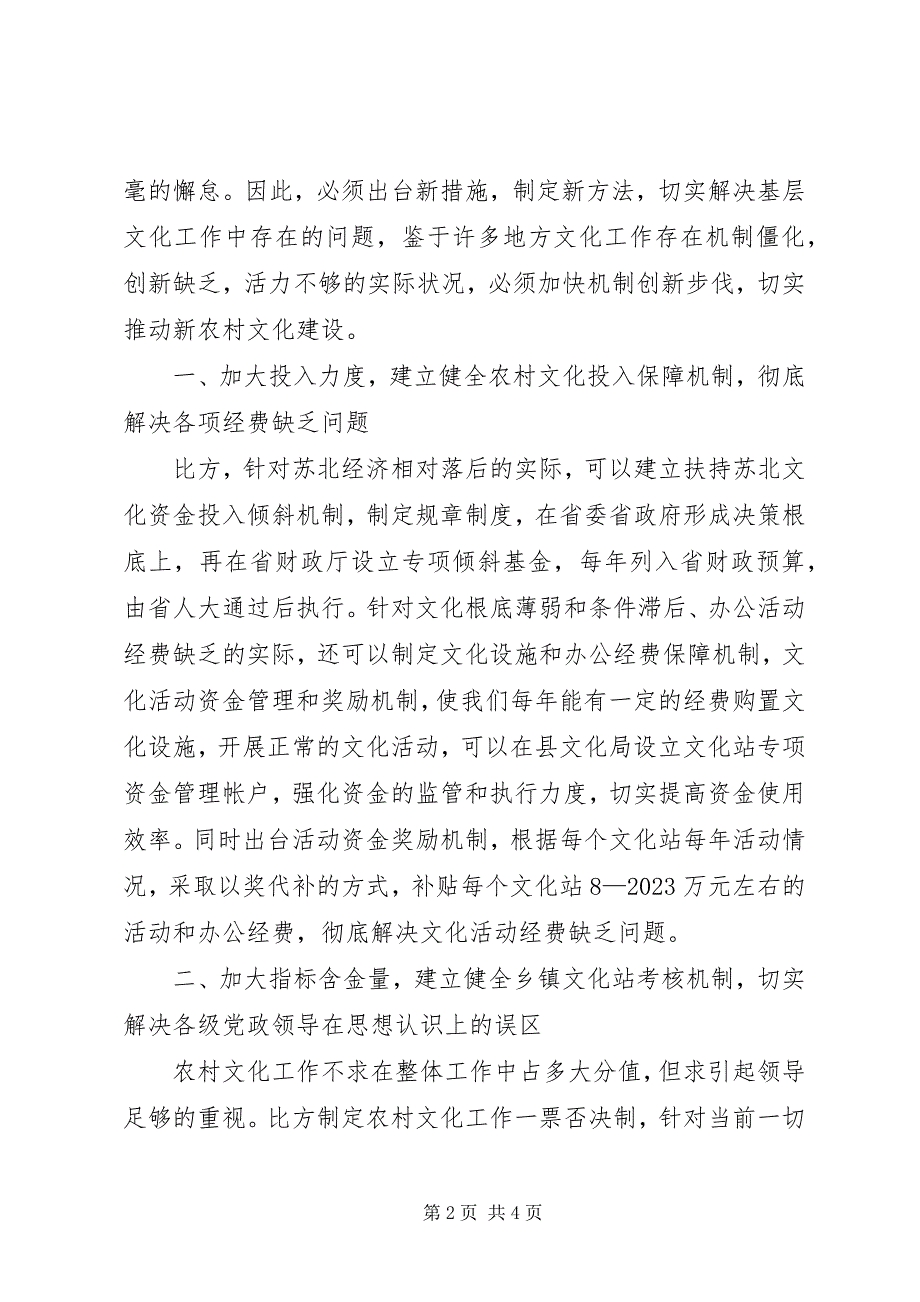 毫的懈怠。因此，必须出台新措施，制定新方法，切实解决基层
文化工作中存在的问题，鉴于许多地方文化工作存在机制僵化，
创新缺乏，活力不够的实际状况，必须加快机制创新步伐，切实
推动新农村文化建设。
一、加大投入力度，建立健全农村文化投入保障机制，彻底
解决各项经费缺乏问题
比方，针对苏北经济相对落后的实际，可以建立扶持苏北文
化资金投入倾斜机制，制定规章制度，在省委省政府形成决策根
底上，再在省财政厅设立专项倾斜基金，每年列入省财政预算，
由省人大通过后执行。针对文化根底薄弱和条件滞后、办公活动
经费缺乏的实际，还可以制定文化设施和办公经费保障机制，文
化活动资金管理和奖励机制，使我们每年能有一定的经费购置文
化设施，开展正常的文化活动，可以在县文化局设立文化站专项
资金管理帐户，强化资金的监管和执行力度，切实提高资金使用
效率。同时出台活动资金奖励机制，根据每个文化站每年活动情
况，采取以奖代补的方式，补贴每个文化站 8—2023 万元左右的
活动和办公经费，彻底解决文化活动经费缺乏问题。
二、加大指标含金量，建立健全乡镇文化站考核机制，切实
解决各级党政领导在思想认识上的误区
农村文化工作不求在整体工作中占多大分值，但求引起领导
足够的重视。比方制定农村文化工作一票否决制，针对当前一切
第 2 页 共 4 页